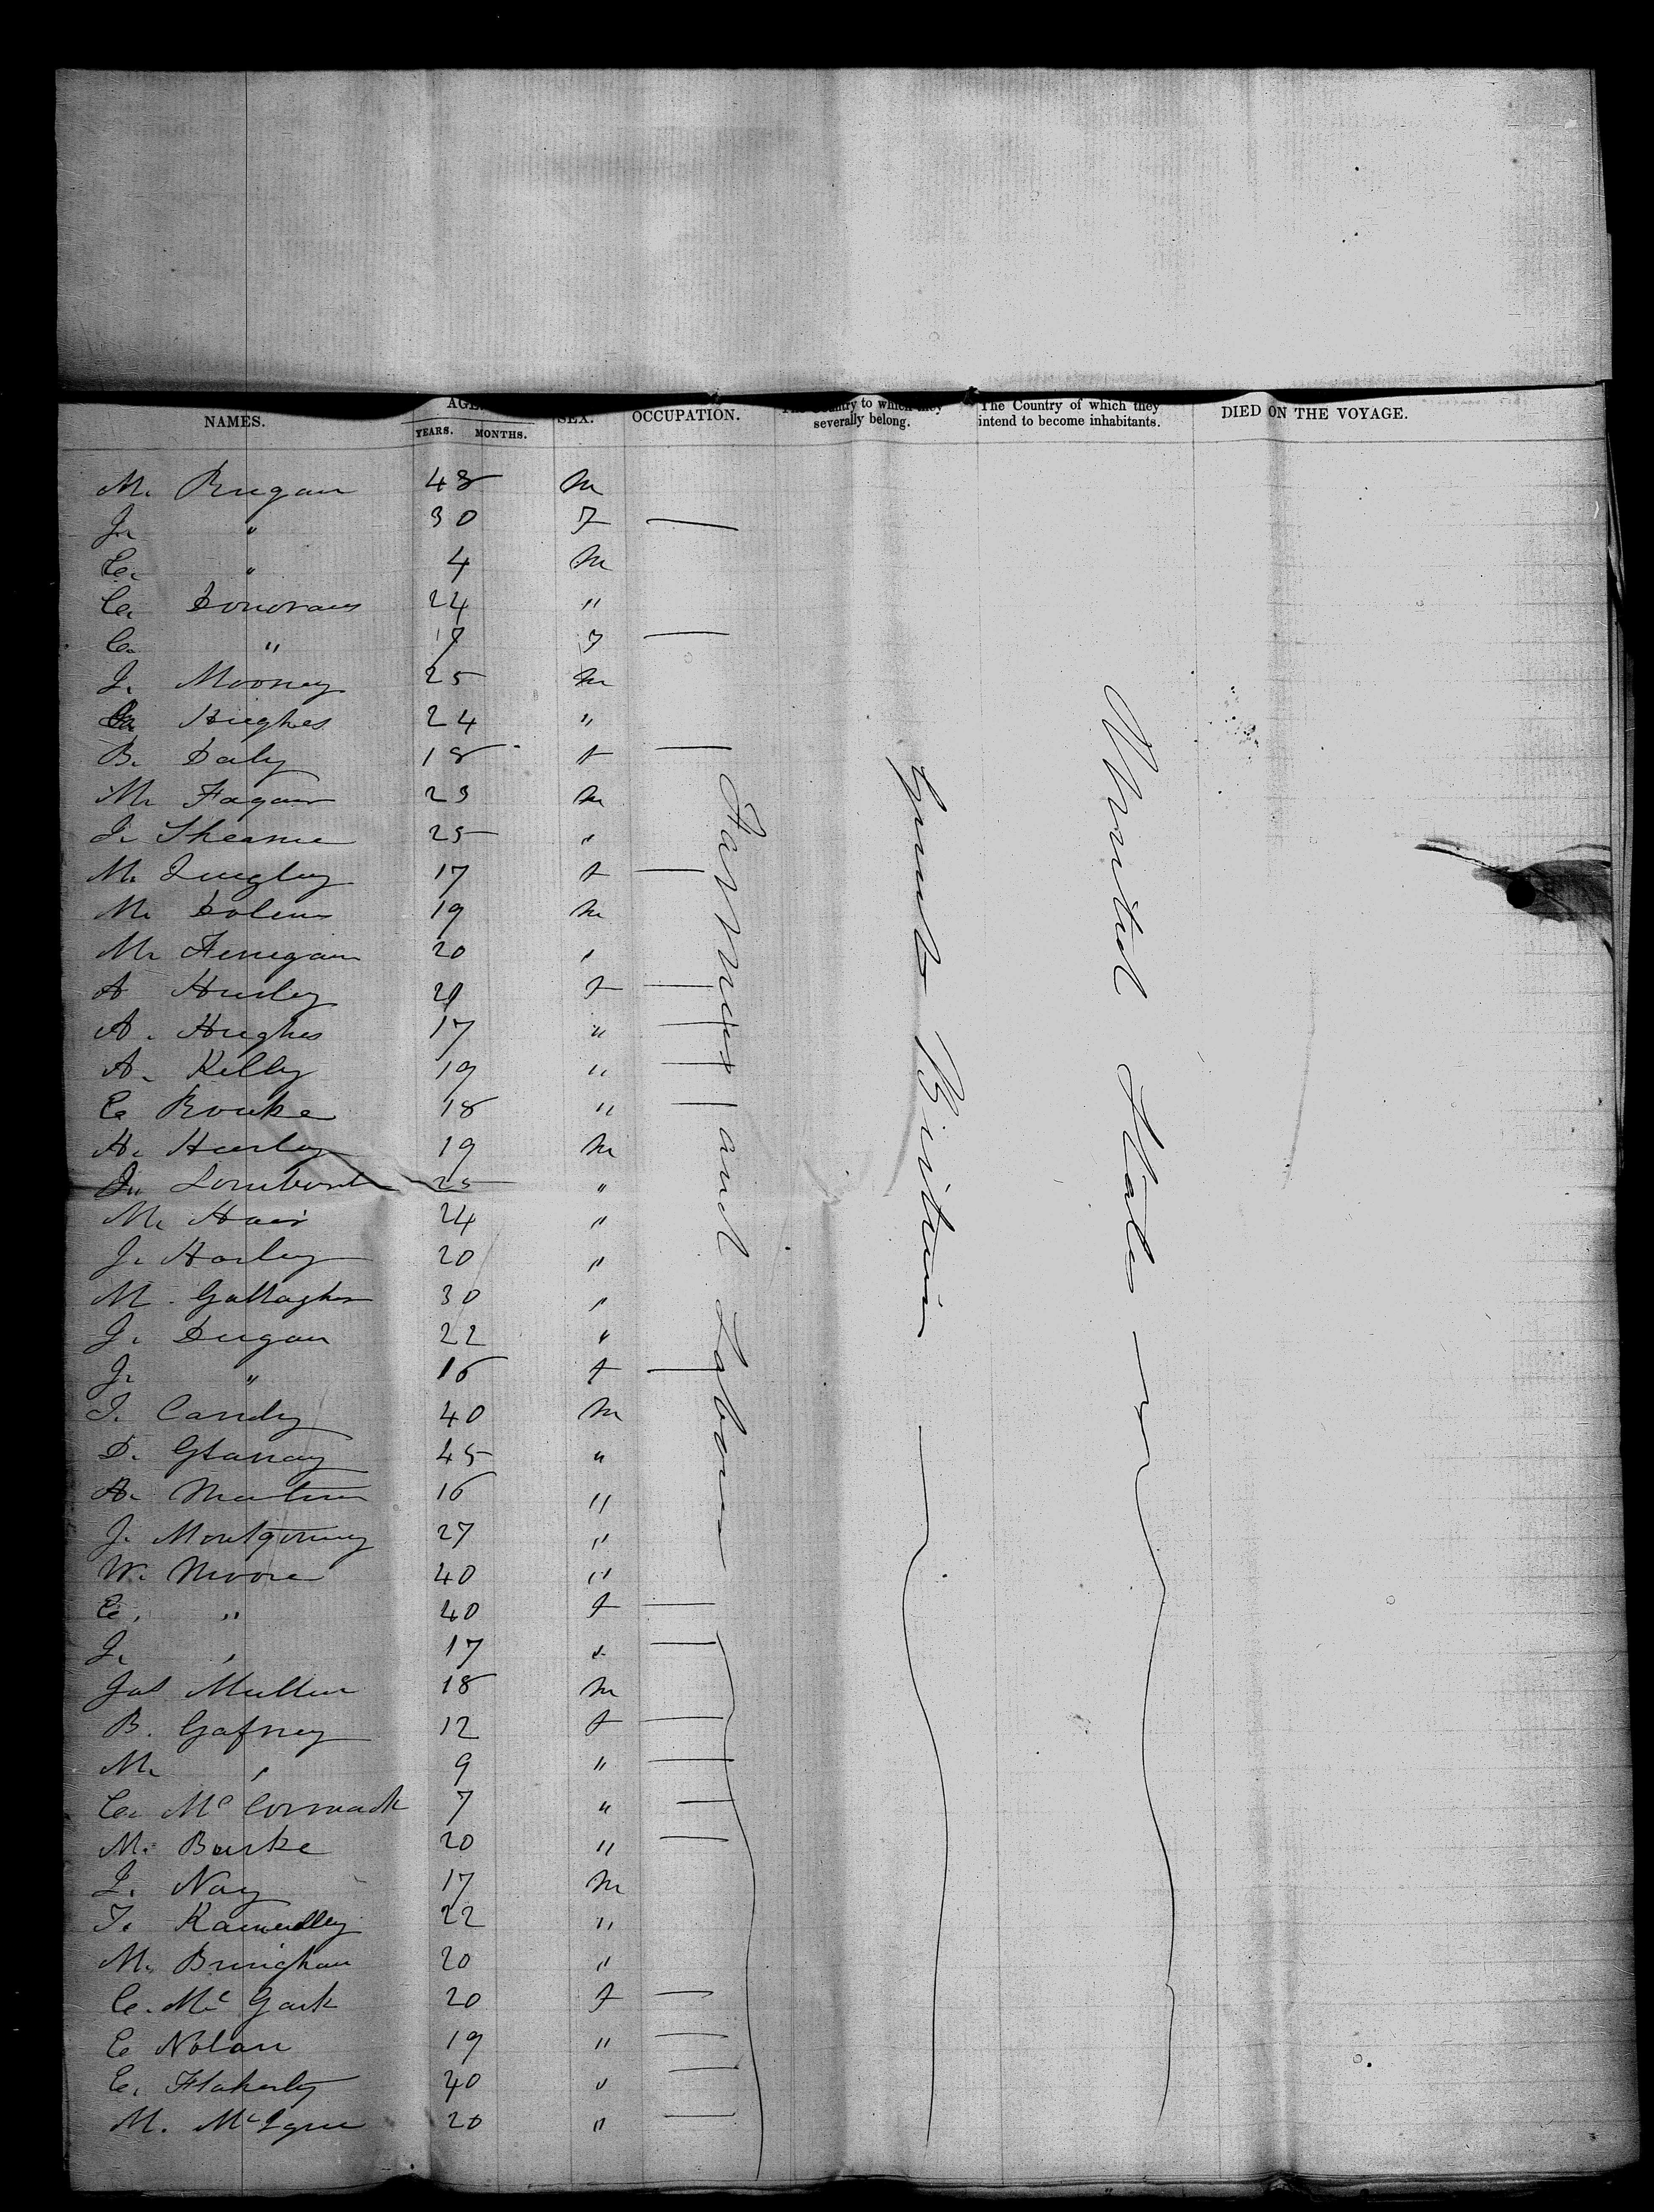 NAMES. AGE. SEX. OCCUPATION. The Country to which they severally belong. The Country of which they intend to become inhabitants. DIED ON THE VOYAGE.
YEARS. MONTHS.
M. Rugan 48 m
J. " 30 F —
C. " 4 m
C. Donovans 24 "
C. " 17 F —
J. Mooney 25 m
Hughes 24 "
B. Daly 18 f —
M. Fagan 23 m
J. 25 "
M. 17 f —
M. 19 m
M. Finegan 20 "
A Hurley 21 f —
A. Hughes 17 " —
A. Kelly 19 " —
C Rourke 18 " —
H. Hurley 19 m
25 "
M. Hair 24 "
J. Harley 20 "
M. Gallagher 30 "
J. Dugan 22 "
J. " 16 f —
J. Candy 40 m
D. 45 "
A. Martin 16 "
J. Montgomery 27 "
W. Moore 40 "
C. " 40 f —
J. " 17 " —
Jas Mullen 18 m
B. Gafney 12 f —
M. " 9 " —
C. McCormack 7 " —
M. Burke 20 " —
L. Nay 17 m
T. 22 "
M. 20 "
C. Mc 20 f —
C Nolan 19 " —
C. Flaherty 40 " —
M. Mc 20 " —
Farmers and Labourers
Great Britain
United States